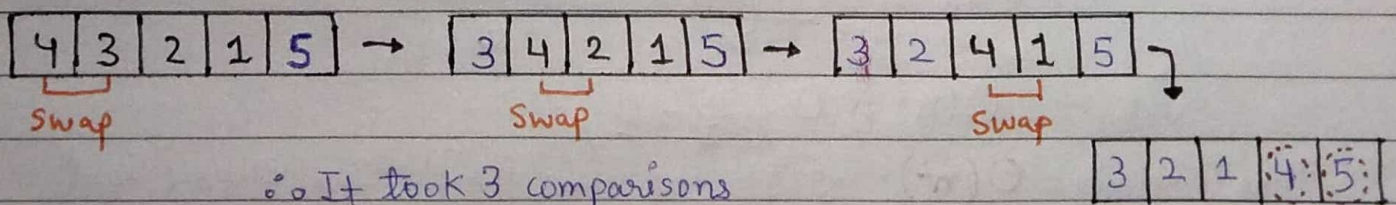 4 3 2 1 5 → 3 4 2 1 5 → 3 2 4 1 5
Swap Swap Swap
∴ It took 3 comparisons 3 2 1 4 5